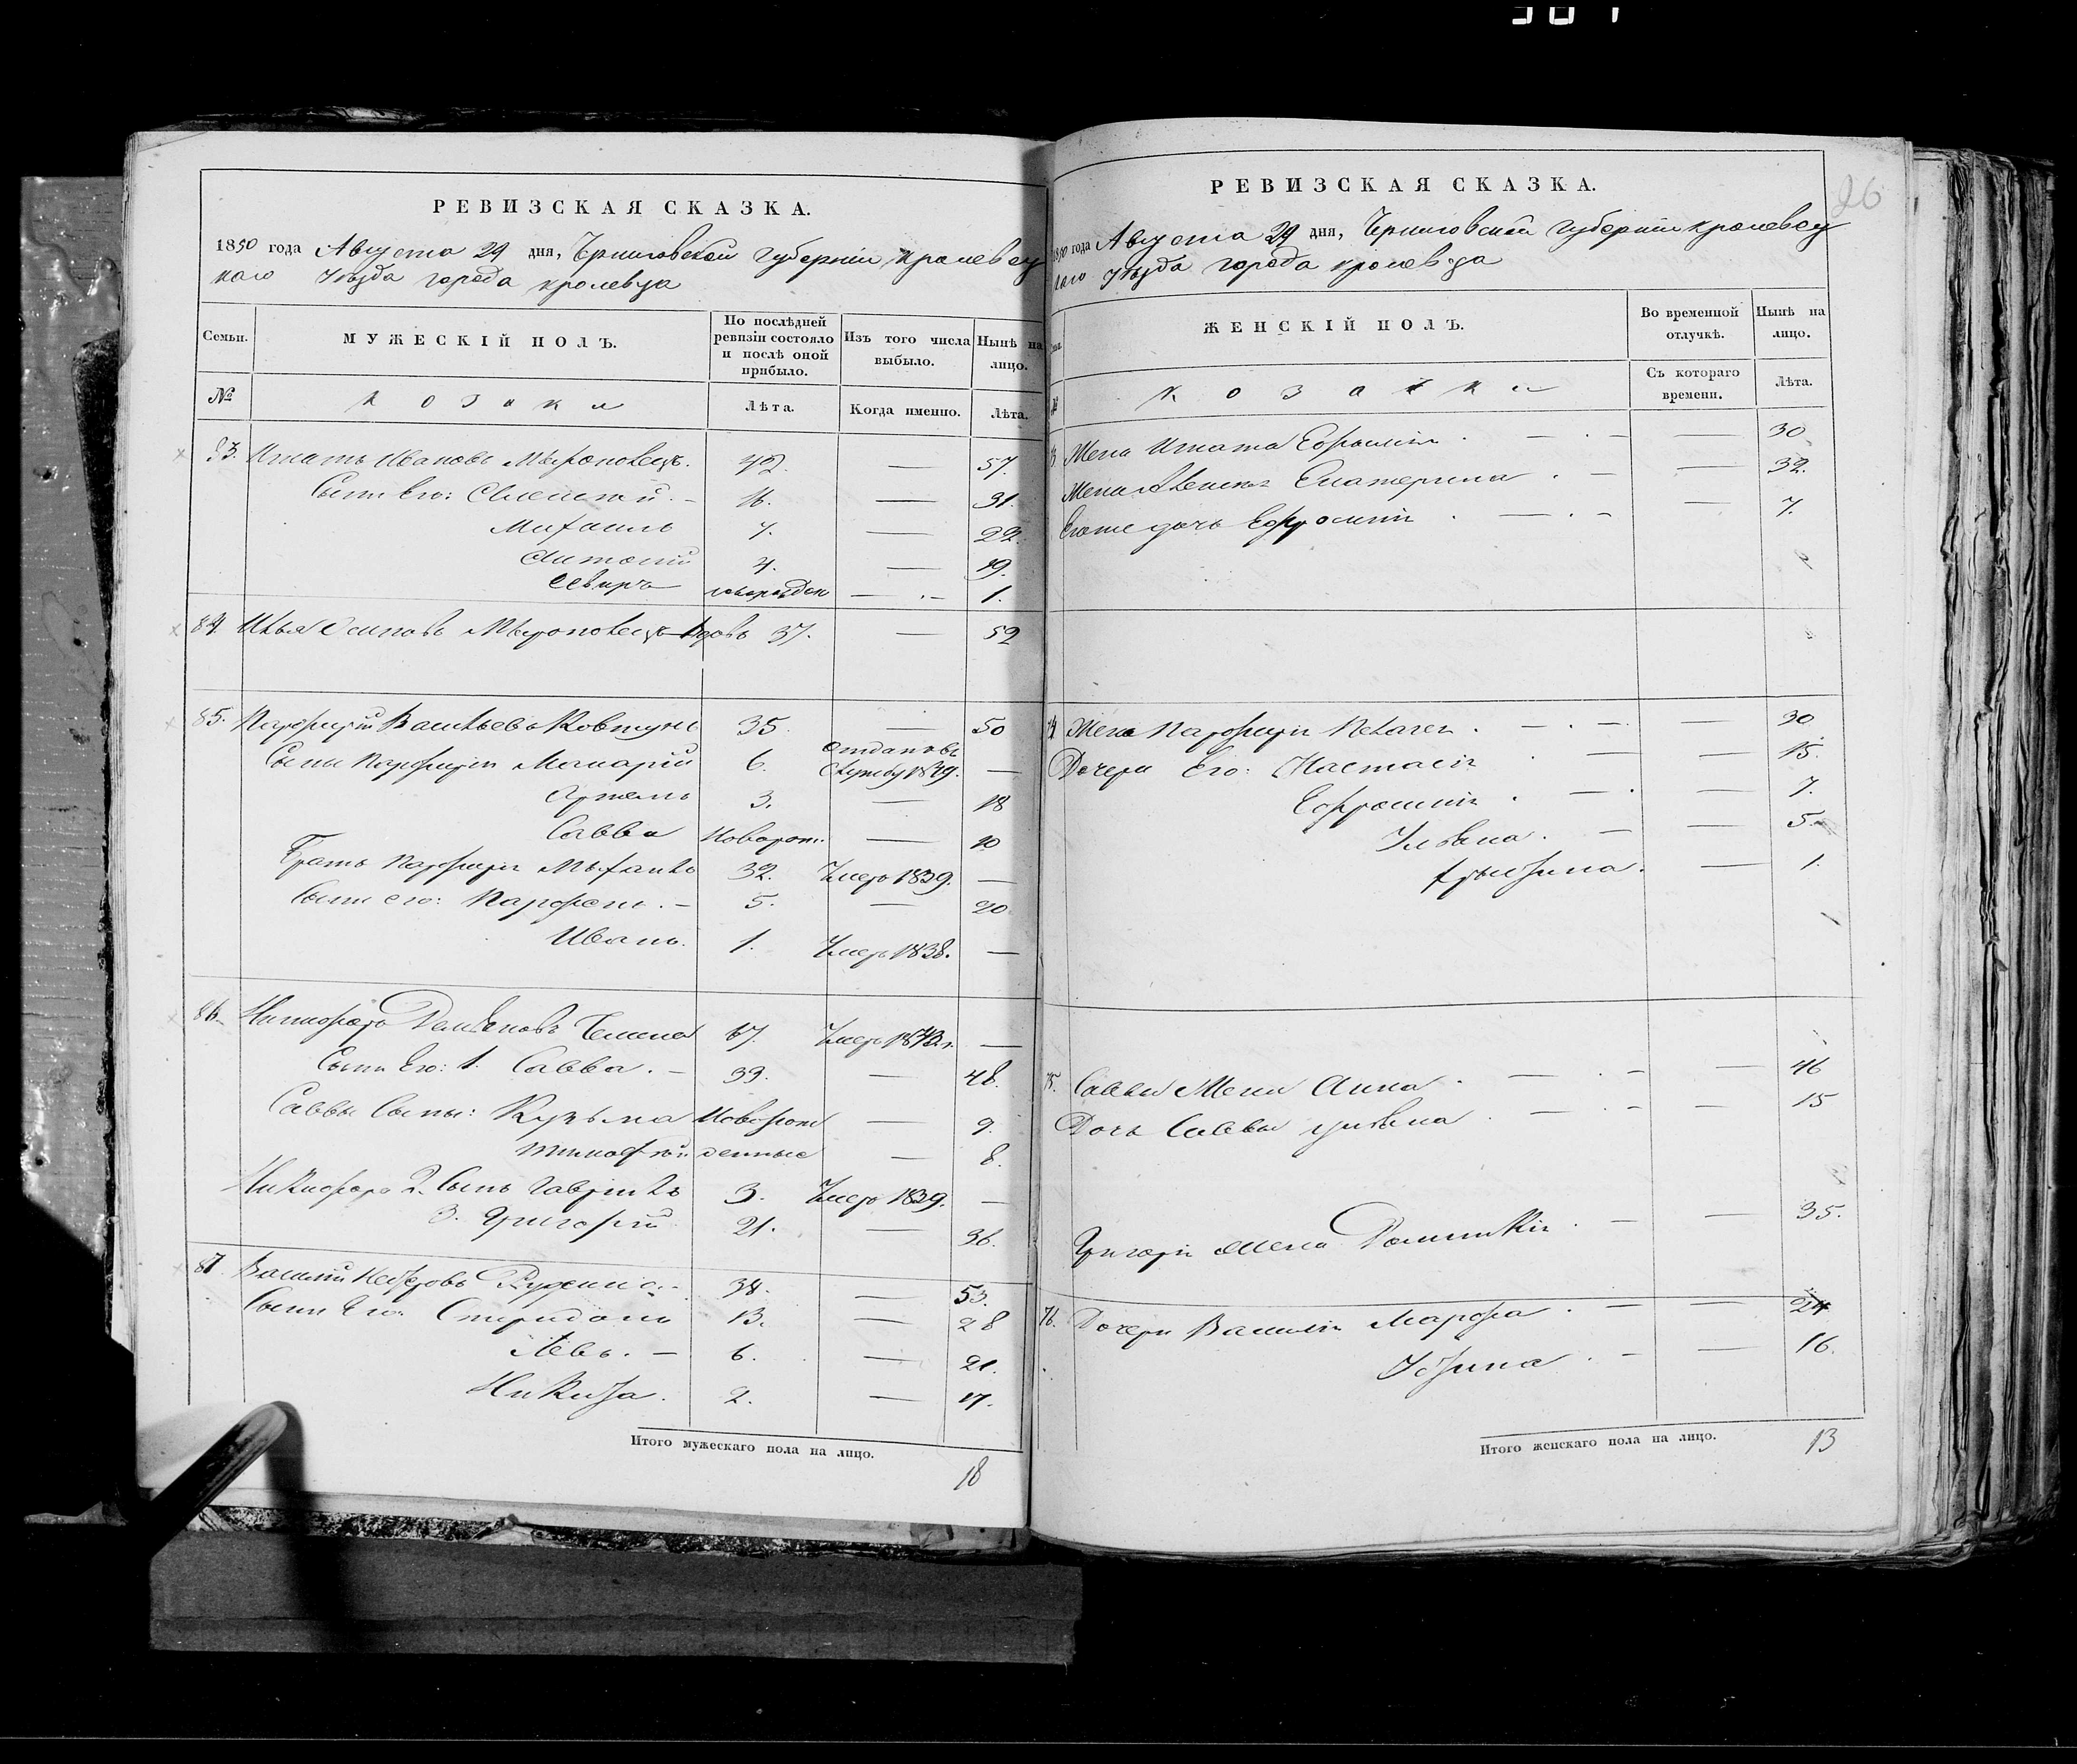 РЕВИЗСКАЯ СКАЗКА.
1850 года Августа 29 дня, Черниговской губерніи кролевец
каго уѣзда города кролевца
Семьи. МУЖЕСКІЙ ПОЛЪ. По послѣдней ревизіи состояло и послѣ оной прибыло. Изъ того числа выбыло. Нынѣ на лицо.
№ козаки Лѣта. Когда именно. Лѣта.
83. Игнатъ Ивановъ 42. — 57.
Сыни Его: Алексѣй. — 16. — 31.
Михаилъ 7. — 22.
Антоній 4. — 19.
новорожден — 1.
84. Илья Осиповъ вдовъ 37. — 52
85. Парфирій Васильевъ Ковтунъ 35. — 50
Сыни Парфирія Макарій 6. отданъ въ службу 1839. —
Артемъ 3. — 18
Савва Новорож. — 10
Братъ Парфирія Михаилъ 32. Умеръ 1839. —
Сыни его: Парфенъ. — 5. — 20
Иванъ. 1. Умеръ 1838. —
86. Никифоръ Демьяновъ 67. Умеръ —
Сыни Его: 1. Савва. — 33. — 48.
Саввы Сыны: Кузьма Новорож — 9.
Тимофѣй денные — 8.
Никифора 2. Сынъ Гаврило 3. Умеръ 1839. —
3. Григорій 21. — 36.
87. Василій 38. — 53.
Сыни Его: Спиридонъ 13. — 28
Левъ. — 6. — 21.
Никита. 2. — 17.
Итого мужескаго пола на лицо.
18
26
РЕВИЗСКАЯ СКАЗКА.
1850 года Августа 29 дня, Черниговской губерніи кролевец
каго уѣзда города кролевца
ЖЕНСКІЙ ПОЛЪ. Во временной отлучкѣ. Нынѣ на лицо.
№ козачки Съ котораго времени. Лѣта.
Жена Игната — 30
Жена Алексѣя Екатерина. — 32.
Егоже дочь Ефросинія — 7.
74 Жена Парфирія Пелагея. — 30
Дочери Его: Настасія — 15.
Ефросинія. — 7.
Ульяна. — 5.
Христина. — 1.
75. Саввы Жена Анна. — 46
Дочь Саввы Ульяна. — 15
Григорія Жена Домникія. — 35.
76. Дочери Василія Марфа. — 24
Устина. — 16.
Итого женскаго пола на лицо.
13